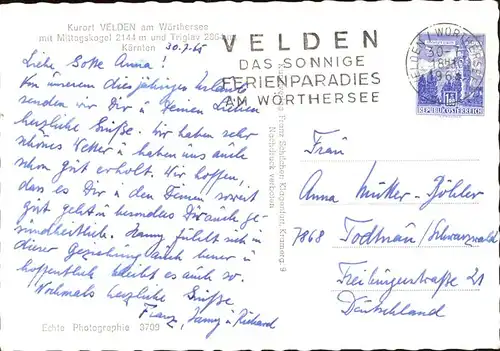 Kurort VELDEN am Wörthersee
mit Mittagskogel 2144 m und Triglav 2864 m
Kärnten
30.7.65
Liebe Anna!
Von unserem diesjährigen Urlaub
senden wir Dir u Deinen Lieben
herzliche Grüße. Wir haben sehr
schönes Wetter u haben uns auch
schon gut erholt. Wir hoffen,
dass es Dir u den Deinen soweit
gut geht u besonders Dir auch ge-
sundheitlich. Hanny fühlt sich in
dieser Beziehung auch besser u
hoffentlich bleibt es auch so.
Nochmals herzliche Grüße
Franz, Hanny u Richard
Echte Photographie 3709
Franz Schilcher, Klagenfurt
Nachdruck verboten
VELDEN
DAS SONNIGE
FERIENPARADIES
AM WÖRTHERSEE
VELDEN / WÖRTHERSEE
REPUBLIK ÖSTERREICH
Frau
Anna Müller-Böhler
7868 Todtnau/Schwarzwald
Freiburgerstraße 21
Deutschland